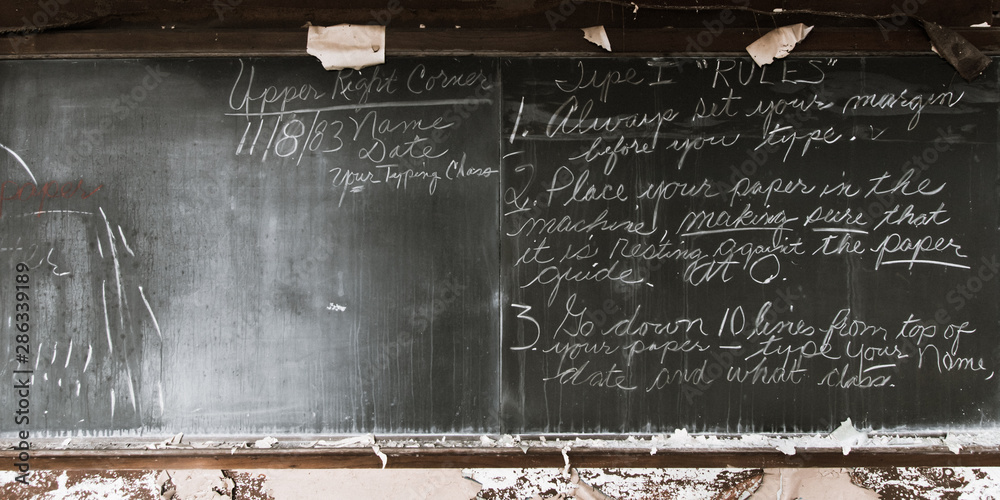 Upper Right Corner
11/8/83 Name
Date
Your Typing Class
Type I "RULES"
1. Always set your margin
before you type.
2. Place your paper in the
machine, making sure that
it is resting against the paper
guide. At 0.
3. Go down 10 lines from top of
your paper – type your Name,
date and what class.
Adobe Stock | #286339189